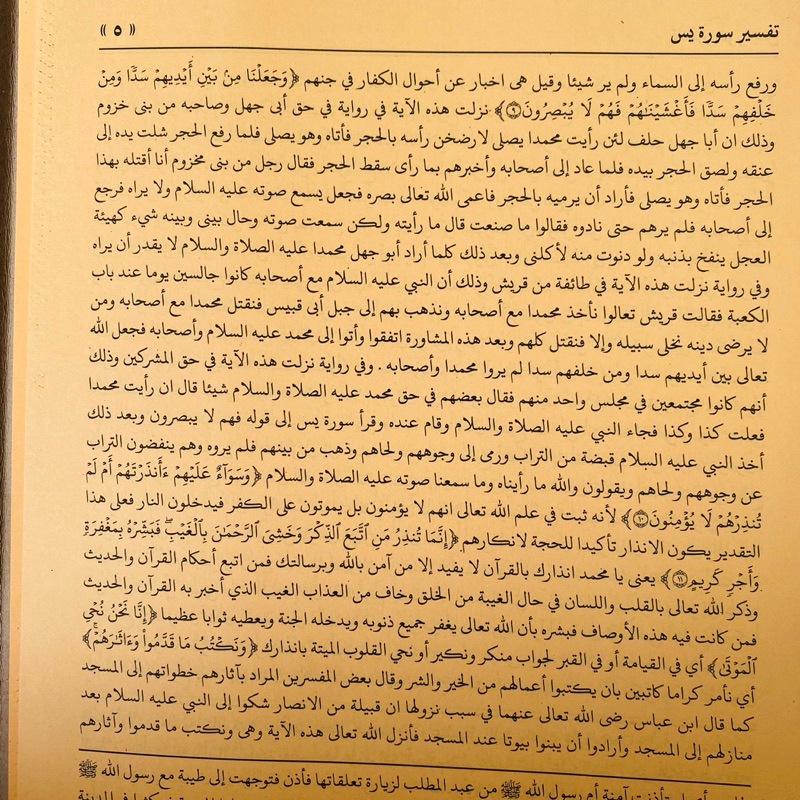 تفسير سورة يس
« ٥ »
ورفع رأسه إلى السماء ولم ير شيئا وقيل هى اخبار عن أحوال الكفار في جنهم ﴿وَجَعَلْنَا مِنْ بَيْنِ أَيْدِيهِمْ سَدًّا وَمِنْ
خَلْفِهِمْ سَدًّا فَأَغْشَيْنَاهُمْ فَهُمْ لَا يُبْصِرُونَ ۝٩﴾ نزلت هذه الآية في رواية في حق أبى جهل وصاحبه من بنى خزوم
وذلك ان أبا جهل حلف لئن رأيت محمدا يصلى لارضخن رأسه بالحجر فأتاه وهو يصلى فلما رفع الحجر شلت يده إلى
عنقه ولصق الحجر بيده فلما عاد إلى أصحابه وأخبرهم بما رأى سقط الحجر فقال رجل من بنى مخزوم أنا أقتله بهذا
الحجر فأتاه وهو يصلى فأراد أن يرميه بالحجر فاعمى الله تعالى بصره فجعل يسمع صوته عليه السلام ولا يراه فرجع
إلى أصحابه فلم يرهم حتى نادوه فقالوا ما صنعت قال ما رأيته ولكن سمعت صوته وحال بينى وبينه شيء كهيئة
العجل ينفخ بذنبه ولو دنوت منه لأكلنى وبعد ذلك كلما أراد أبو جهل محمدا عليه الصلاة والسلام لا يقدر أن يراه
وفي رواية نزلت هذه الآية في طائفة من قريش وذلك أن النبي عليه السلام مع أصحابه كانوا جالسين يوما عند باب
الكعبة فقالت قريش تعالوا نأخذ محمدا مع أصحابه ونذهب بهم إلى جبل أبى قبيس فنقتل محمدا مع أصحابه ومن
لا يرضى دينه نخلى سبيله وإلا فنقتل كلهم وبعد هذه المشاورة اتفقوا وأتوا إلى محمد عليه السلام وأصحابه فجعل الله
تعالى بين أيديهم سدا ومن خلفهم سدا لم يروا محمدا وأصحابه . وفي رواية نزلت هذه الآية في حق المشركين وذلك
أنهم كانوا مجتمعين في مجلس واحد منهم فقال بعضهم في حق محمد عليه الصلاة والسلام شيئا قال ان رأيت محمدا
فعلت كذا وكذا فجاء النبي عليه الصلاة والسلام وقام عنده وقرأ سورة يس إلى قوله فهم لا يبصرون وبعد ذلك
أخذ النبي عليه السلام قبضة من التراب ورمى إلى وجوههم ولحاهم وذهب من بينهم فلم يروه وهم ينفضون التراب
عن وجوههم ولحاهم ويقولون والله ما رأيناه وما سمعنا صوته عليه الصلاة والسلام ﴿وَسَوَآءٌ عَلَيْهِمْ ءَأَنذَرْتَهُمْ أَمْ لَمْ
تُنذِرْهُمْ لَا يُؤْمِنُونَ ۝١٠﴾ لأنه ثبت في علم الله تعالى انهم لا يؤمنون بل يموتون على الكفر فيدخلون النار فعلى هذا
التقدير يكون الانذار تأكيدا للحجة لانكارهم ﴿إِنَّمَا تُنذِرُ مَنِ ٱتَّبَعَ ٱلذِّكْرَ وَخَشِيَ ٱلرَّحْمَٰنَ بِٱلْغَيْبِ ۖ فَبَشِّرْهُ بِمَغْفِرَةٍ
وَأَجْرٍ كَرِيمٍ ۝١١﴾ يعنى يا محمد انذارك بالقرآن لا يفيد إلا من آمن بالله وبرسالتك فمن اتبع أحكام القرآن والحديث
وذكر الله تعالى بالقلب واللسان في حال الغيبة من الخلق وخاف من العذاب الغيب الذي أخبر به القرآن والحديث
فمن كانت فيه هذه الأوصاف فبشره بأن الله تعالى يغفر جميع ذنوبه ويدخله الجنة ويعطيه ثوابا عظيما ﴿إِنَّا نَحْنُ نُحْيِ
ٱلْمَوْتَىٰ﴾ أي في القيامة أو في القبر لجواب منكر ونكير أو نحي القلوب الميتة بانذارك ﴿وَنَكْتُبُ مَا قَدَّمُوا۟ وَءَاثَٰرَهُمْ ۚ﴾
أي نأمر كراما كاتبين بان يكتبوا أعمالهم من الخير والشر وقال بعض المفسرين المراد بآثارهم خطواتهم إلى المسجد
كما قال ابن عباس رضى الله تعالى عنهما في سبب نزولها ان قبيلة من الانصار شكوا إلى النبي عليه السلام بعد
منازلهم إلى المسجد وأرادوا أن يبنوا بيوتا عند المسجد فأنزل الله تعالى هذه الآية وهى ونكتب ما قدموا وآثارهم
آمنة أم رسول الله ﷺ من عبد المطلب لزيارة تعلقاتها فأذن فتوجهت إلى طيبة مع رسول الله ﷺ